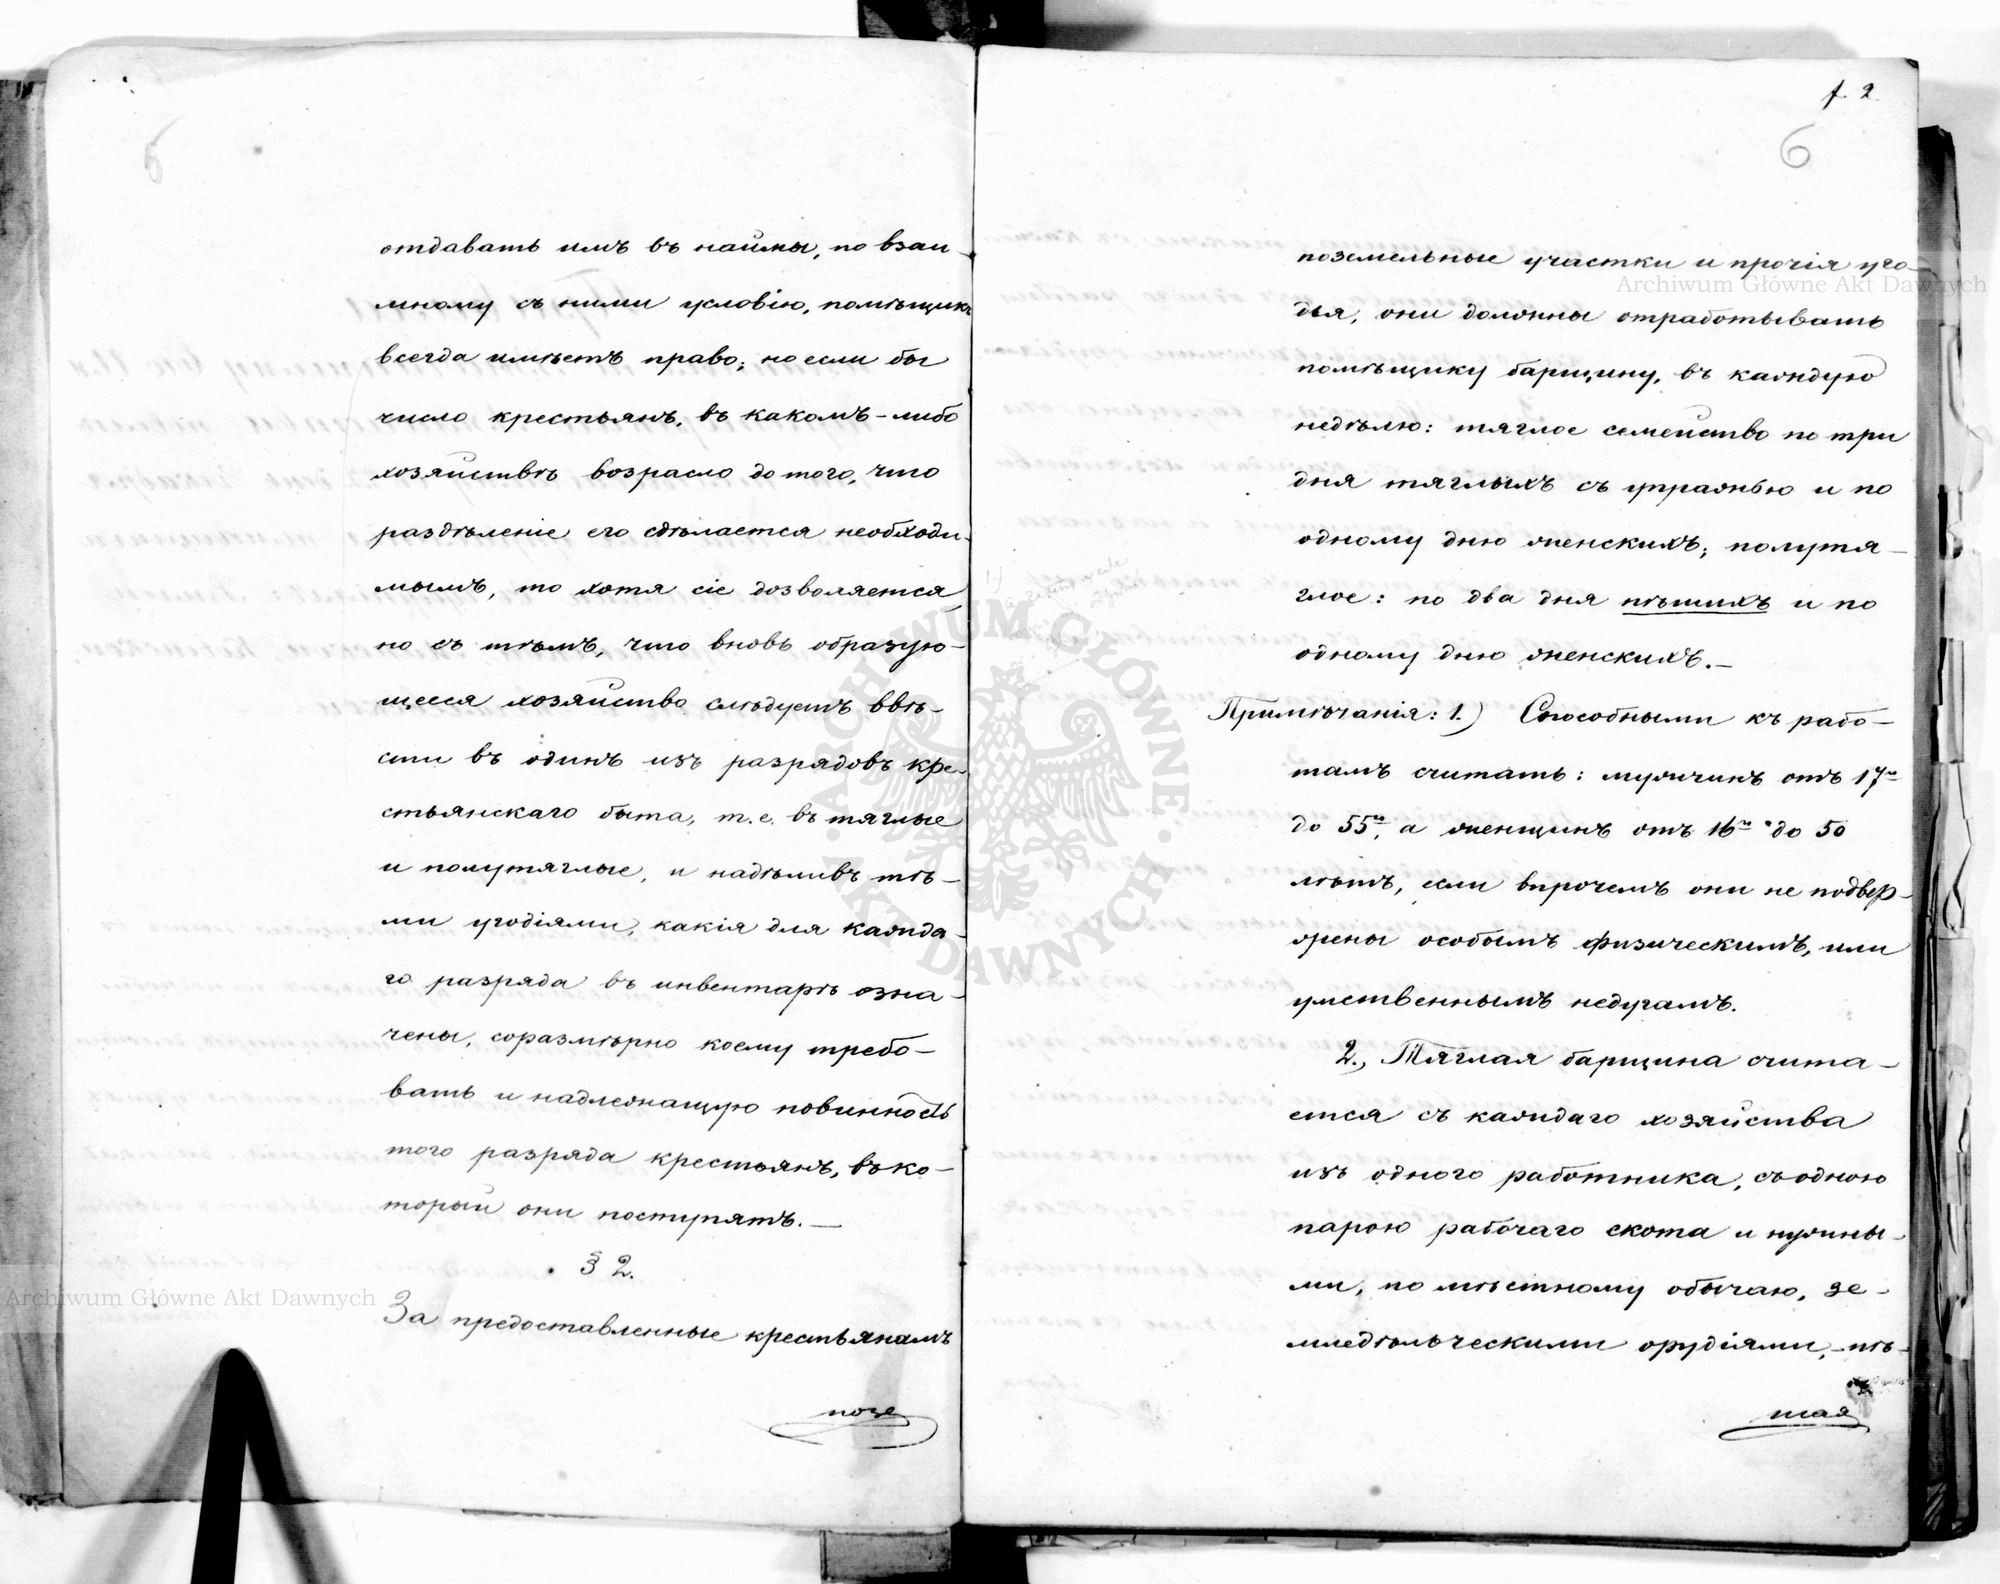 отдавать имъ въ наймы, по взаи-
мному съ ними условію, помѣщикъ
всегда имѣетъ право; но если бы
число крестьянъ, въ какомъ-либо
хозяйствѣ возрасло до того, что
раздѣленіе его сдѣлается необходи-
мымъ, то хотя сіе дозволяется,
но съ тѣмъ, что вновь образую-
щееся хозяйство слѣдуетъ ввѣ-
сти въ одинъ изъ разрядовъ кре-
стьянскаго быта, т.е. въ тяглые
и полутяглые, и надѣливъ тѣ-
ми угодіями, какія для каждa-
го разряда въ инвентарѣ озна-
чены, соразмѣрно коему требо-
вать и надлежащую повинность
того разряда крестьянъ, въ ко-
торый они поступятъ.—
§ 2.
За предоставленные крестьянамъ
позе
f. 2.
6
поземельные участки и прочія уго-
дья, они должны отработывать
помѣщику барщину, въ каждую
недѣлю: тяглое семейство по три
дня тяглыхъ съ упряжью и по
одному дню женскихъ; полутя-
глое: по два дня пѣшихъ и по
одному дню женскихъ.—
Примѣчанія: 1.) Способными къ рабо-
тамъ считать: мужчинъ отъ 17и
до 55и, а женщинъ отъ 16и до 50
лѣтъ, если впрочемъ они не подвер-
жены особымъ физическимъ, или
умственнымъ недугамъ.
2., Тяглая барщина счита-
ется съ каждаго хозяйства
изъ одного работника, съ одною
парою рабочаго скота и нужны-
ми, по мѣстному обычаю, зе-
мледѣльческими орудіями,- пѣ-
шая
Archiwum Główne Akt Dawnych
ARCHIWUM GŁÓWNE · AKT DAWNYCH ·
Archiwum Główne Akt Dawnych